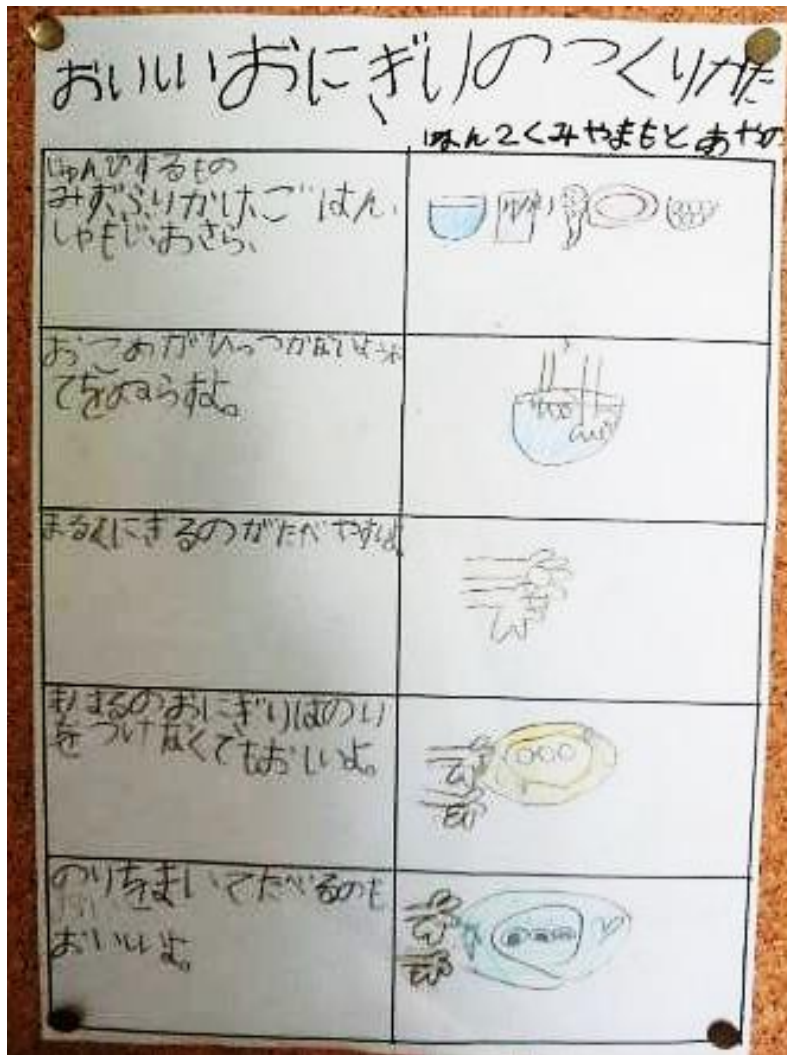 おいいいおにぎりのつくりかた
はん2くみやまもとあやの
じゅんびするもの
みず、ふりかけ、ごはん、
しゃもじ、おさら、
おこめがひっつかないように
てをぬらすよ。
まるくにぎるのがたべやすいよ
まるのおにぎりはのり
をつけなくてもおしいよ。
のりをまいてたべるのも
おいいいよ。